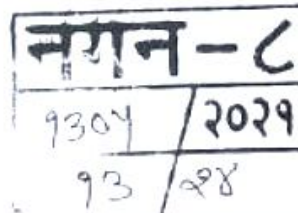 नगन - ८
१३०५ / २०२१
१३ / २४